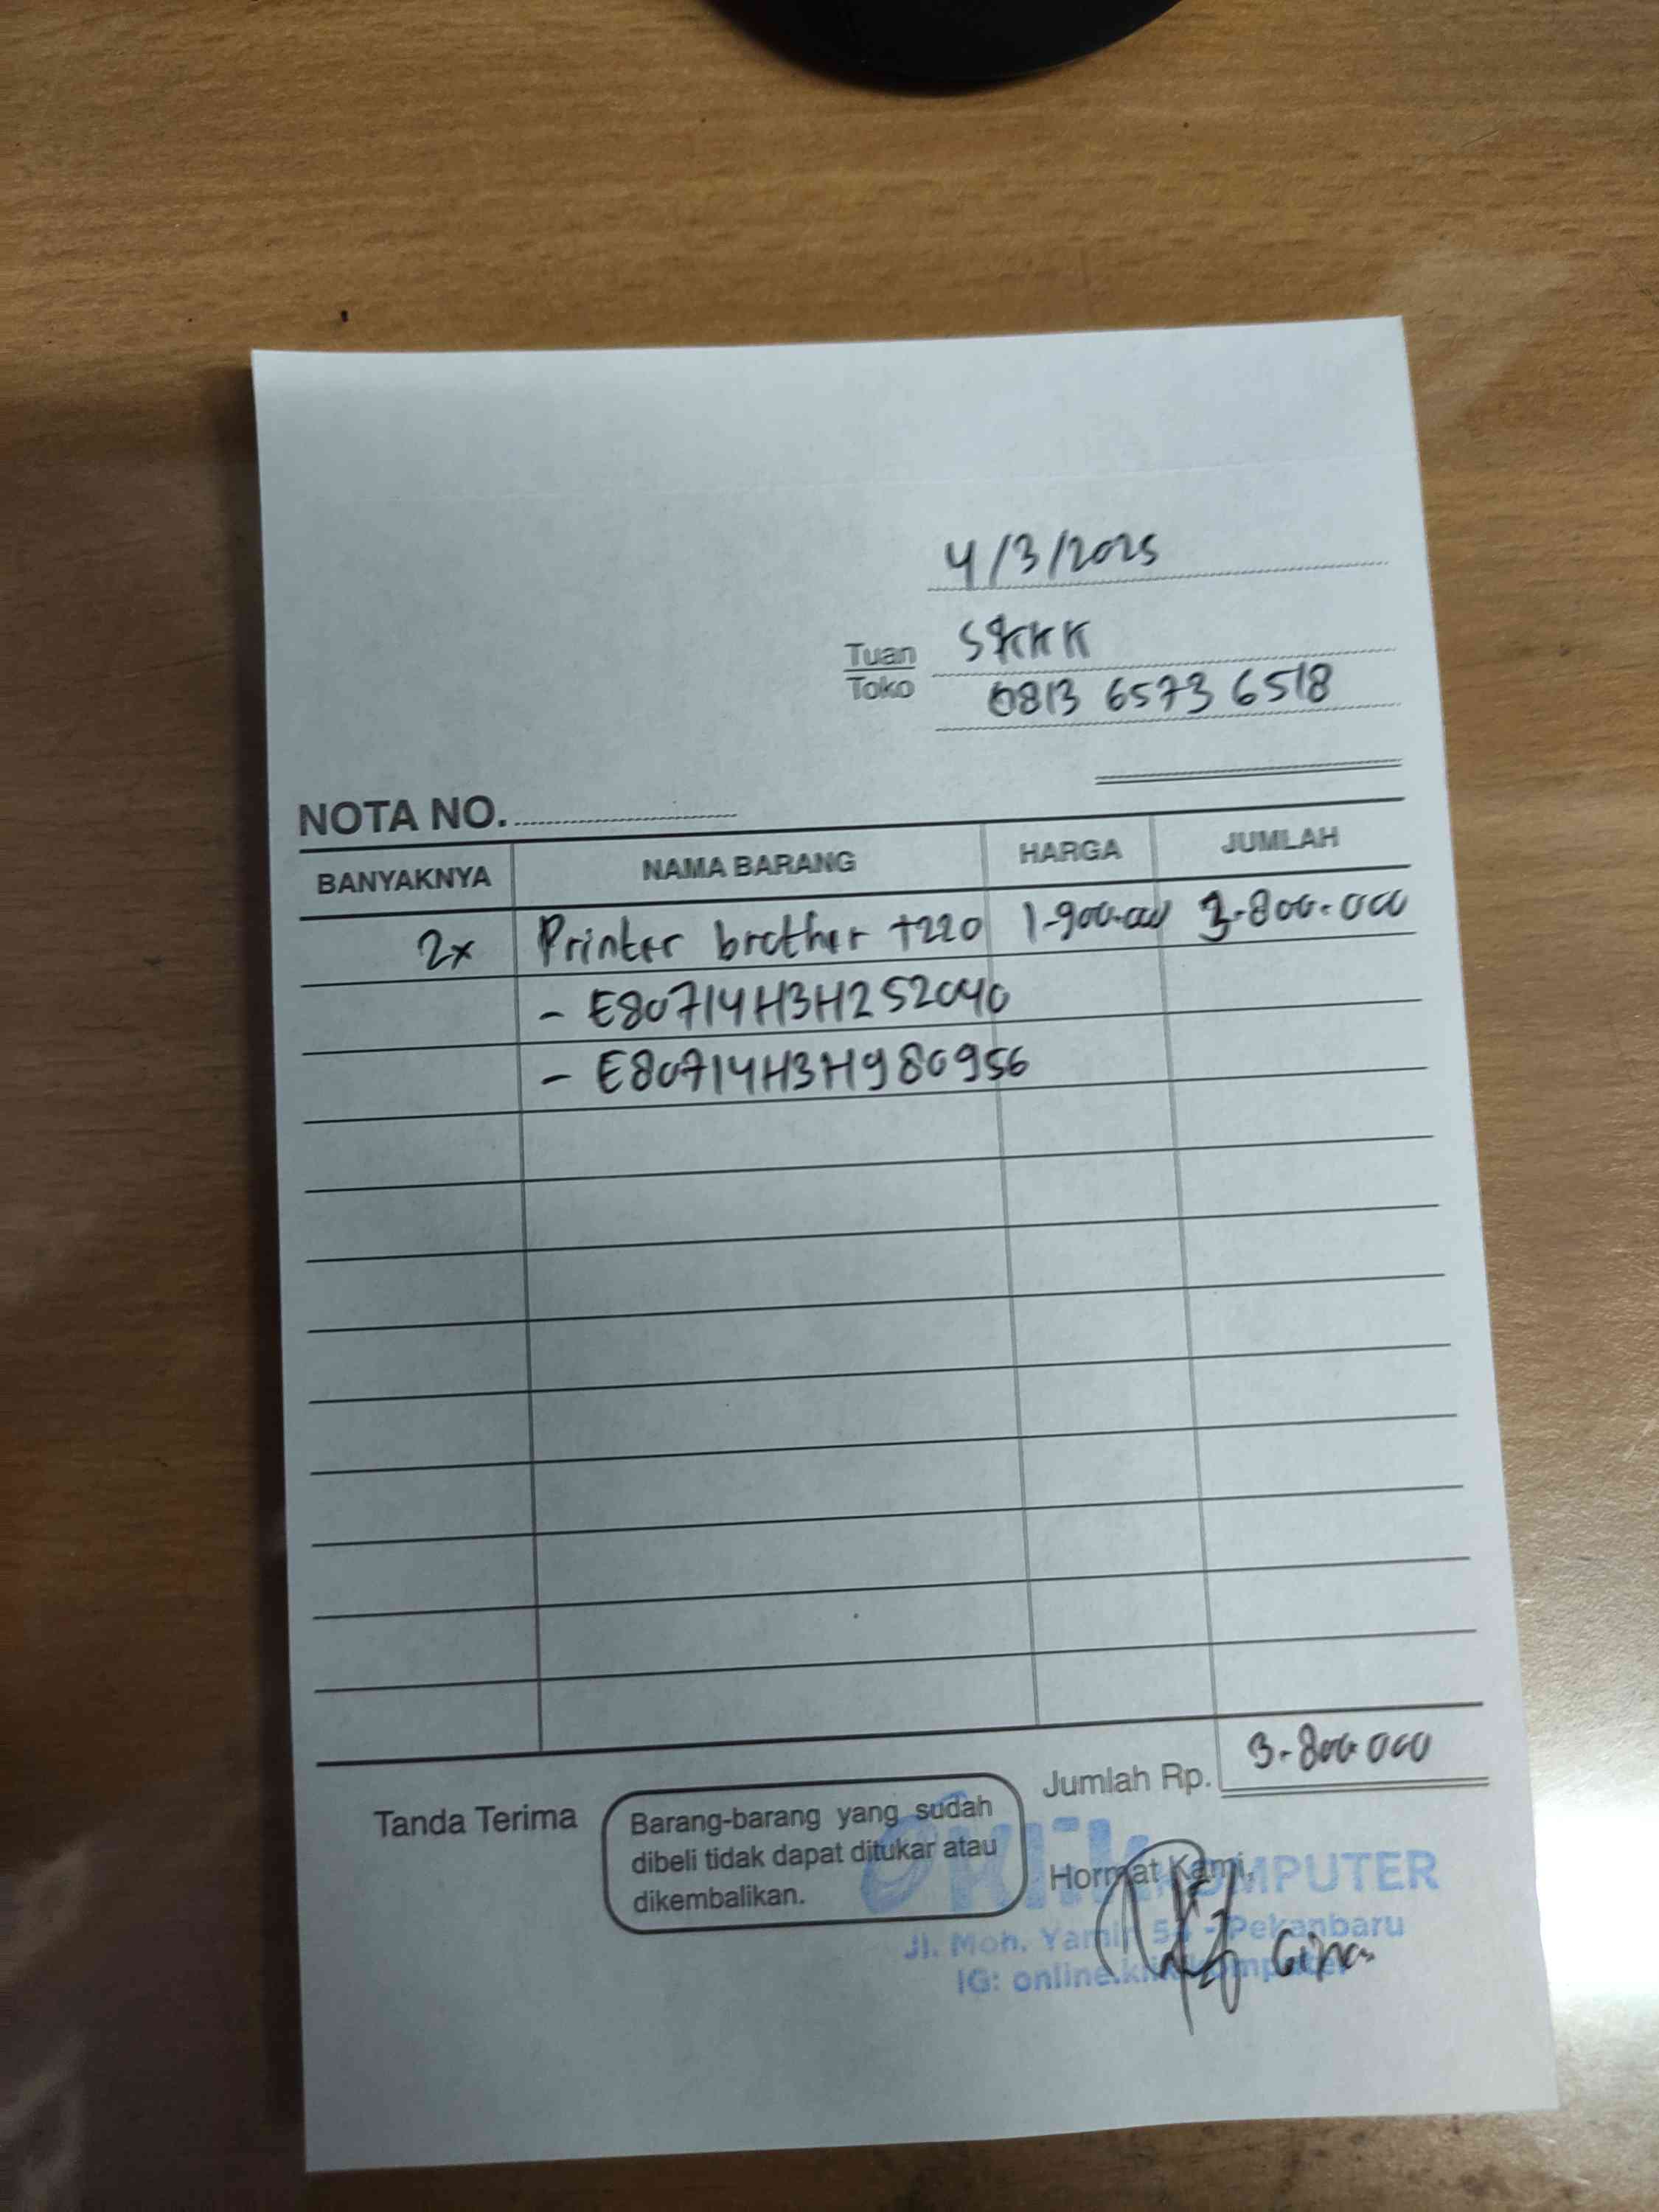 4/3/2025
Tuan SKKK
Toko 0813 6573 6518
NOTA NO.
BANYAKNYA NAMA BARANG HARGA JUMLAH
2x Printer brother t220 1.900.000 3.800.000
- E80714H3H252040
- E80714H3H980956
Jumlah Rp. 3.800.000
Tanda Terima
Barang-barang yang sudah
dibeli tidak dapat ditukar atau
dikembalikan.
Hormat Kami,
KOMPUTER
Jl. Moh. Yamin - Pekanbaru
IG: online.klikkomputer